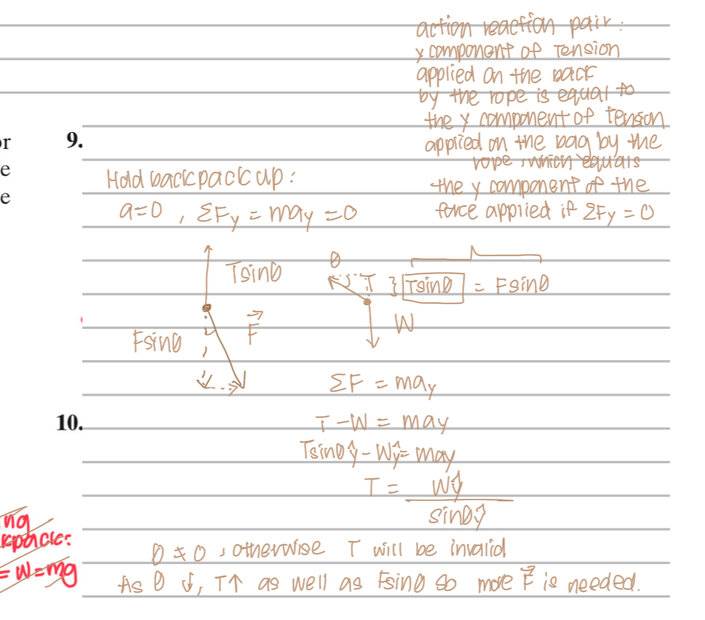 action reaction pair:
y component of Tension
applied on the back
by the rope is equal to
the y component of Tension
applied on the bag by the
rope, which equals
the y component of the
force applied if ΣFy = 0
or
e
e
9.
Hold backpack up:
a=0 , ΣFy = may = 0
Tsinθ
F⃗
Fsinθ
θ
T } Tsinθ = Fsinθ
W
ΣF = may
10.
T - W = may
Tsinθŷ - Wŷ = may
T = Wŷ / sinθŷ
ng
kpack:
= W = mg
θ ≠ 0 , otherwise T will be invalid
As θ ↓, T↑ as well as Fsinθ so more F⃗ is needed.